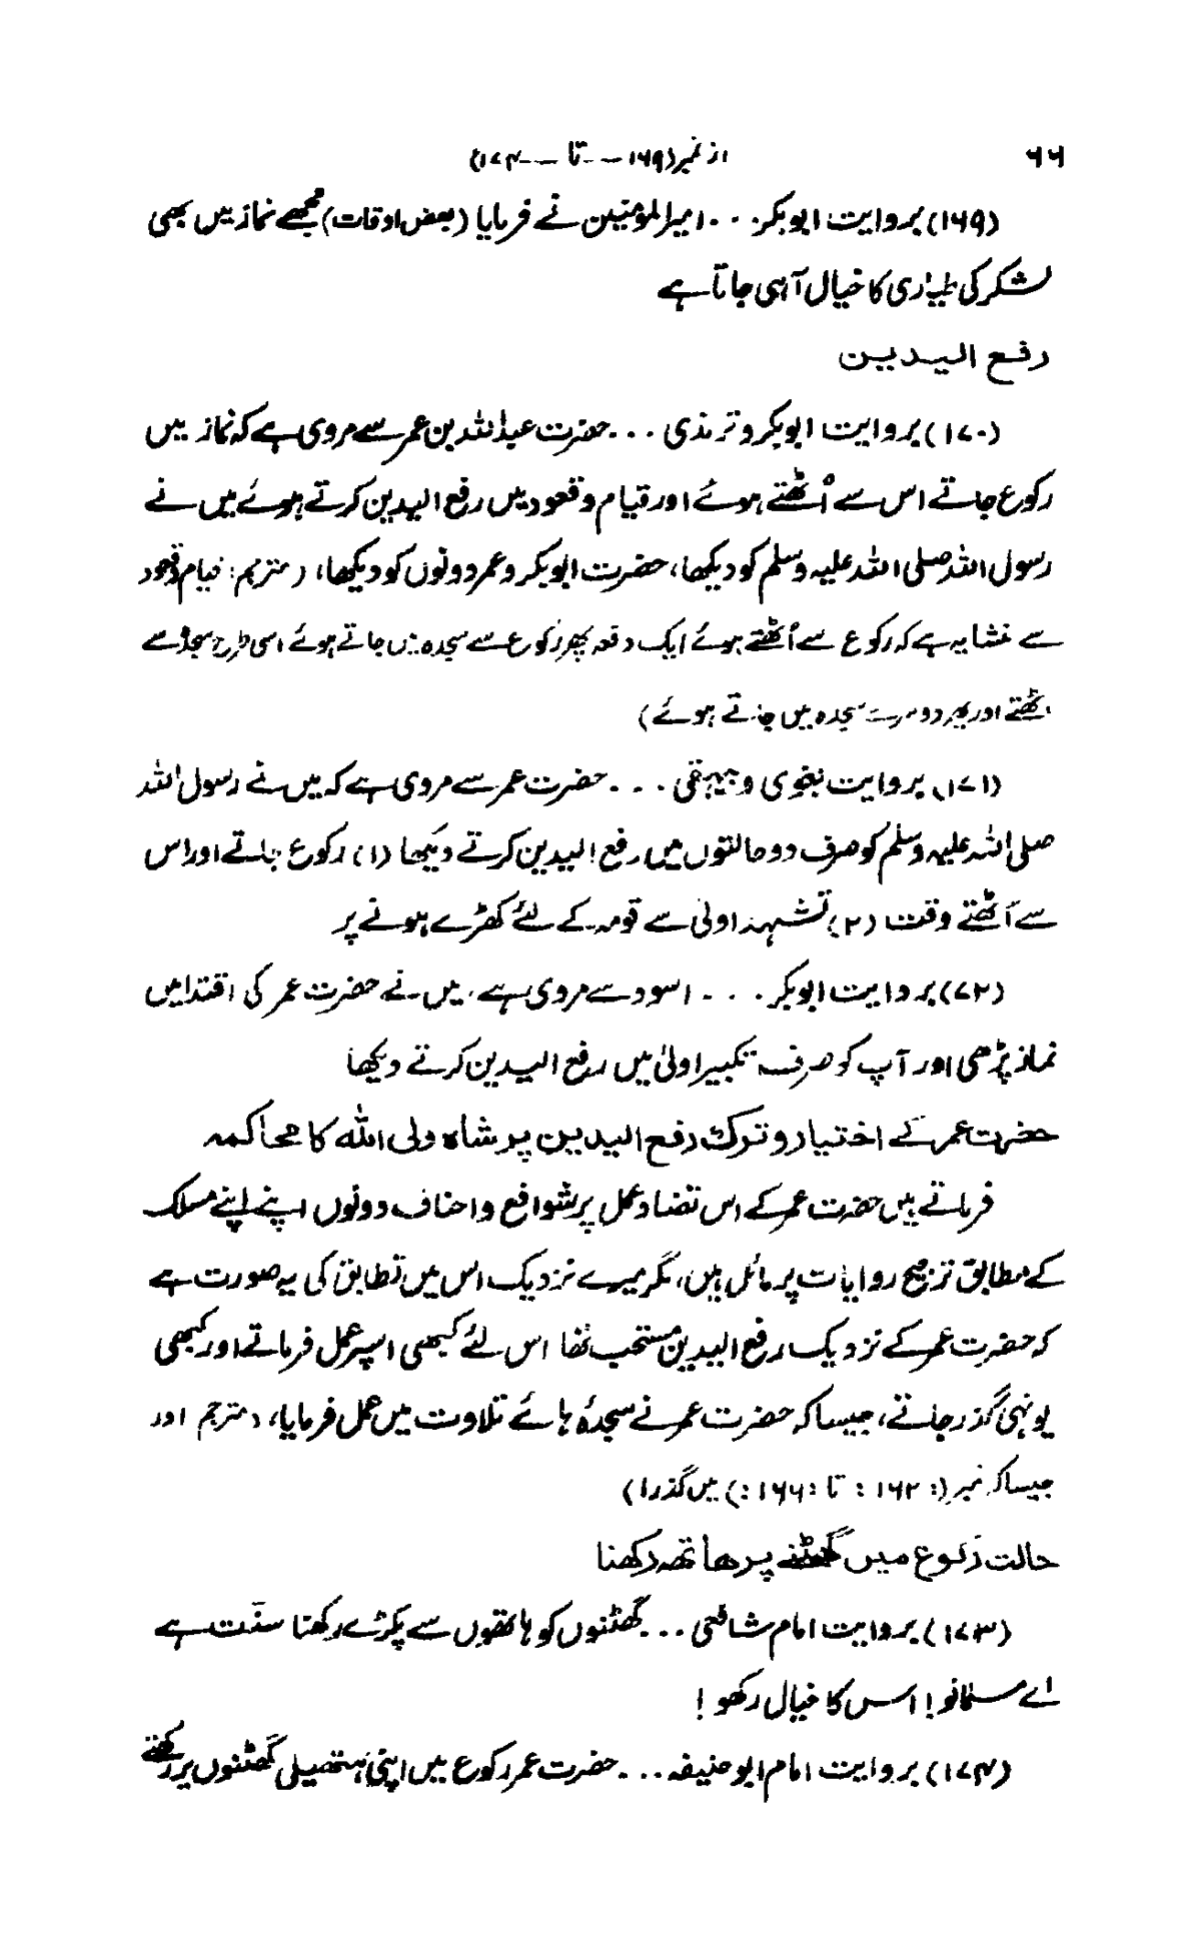 ۶۶
از نمبر (۱۶۹ -- تا -- ۱۷۴)
(۱۶۹) بروایت ابوبکر . . . امیرالمؤمنین نے فرمایا (بعض اوقات) مجھے نماز میں بھی
لشکر کی طیاری کا خیال آ ہی جاتا ہے
رفع الیدین
(۱۷۰) بروایت ابوبکر و ترمذی . . . حضرت عبداللہ بن عمر سے مروی ہے کہ نماز میں
رکوع جاتے اس سے اُٹھتے ہوئے اور قیام وقعود میں رفع الیدین کرتے ہوئے میں نے
رسول اللہ صلی اللہ علیہ وسلم کو دیکھا، حضرت ابوبکر و عمر دونوں کو دیکھا، (مترجم: قیام وقعود
سے منشا یہ ہے کہ رکوع سے اُٹھتے ہوئے ایک دفعہ پھر رکوع سے سجدہ میں جاتے ہوئے اسی طرح سجدہ سے
اٹھتے اور پھر دوسرے سجدہ میں جاتے ہوئے)
(۱۷۱) بروایت بغوی و بیہقی . . . حضرت عمر سے مروی ہے کہ میں نے رسول اللہ
صلی اللہ علیہ وسلم کو صرف دو حالتوں میں رفع الیدین کرتے دیکھا (۱) رکوع جاتے اور اس
سے اُٹھتے وقت (۲) تشہد اولیٰ سے قومہ کے لئے کھڑے ہونے پر
(۷۲) بروایت ابوبکر . . . اسود سے مروی ہے، میں نے حضرت عمر کی اقتدا میں
نماز پڑھی اور آپ کو صرف تکبیر اولیٰ میں رفع الیدین کرتے دیکھا
حضرت عمر کے اختیار و ترک رفع الیدین پر شاہ ولی اللہ کا محاکمہ
فرماتے ہیں حضرت عمر کے اس تضاد عمل پر شوافع و احناف دونوں اپنے اپنے مسلک
کے مطابق ترجیح روایات پر مائل ہیں، مگر میرے نزدیک اس میں تطابق کی یہ صورت ہے
کہ حضرت عمر کے نزدیک رفع الیدین مستحب تھا اس لئے کبھی اسپر عمل فرماتے اور کبھی
یونہی گذر جاتے، جیسا کہ حضرت عمر نے سجدۂ ہائے تلاوت میں عمل فرمایا، (مترجم اور
جیسا کہ نمبر (: ۱۶۲ : تا : ۱۶۶ :) میں گذرا)
حالت رکوع میں گھٹنے پر ھاتھ رکھنا
(۱۷۳) بروایت امام شافعی . . . گھٹنوں کو ہاتھوں سے پکڑے رکھنا سنّت ہے
اے مسلمانو! اس کا خیال رکھو!
(۱۷۴) بروایت امام ابو حنیفہ . . . حضرت عمر رکوع میں اپنی ہتھیلی گھٹنوں پر رکھتے